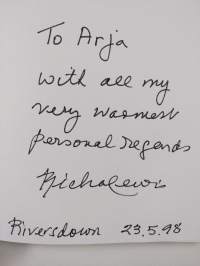 To Arja
with all my
very warmest
personal regards
Richard Lewis
Riversdown 23.5.98